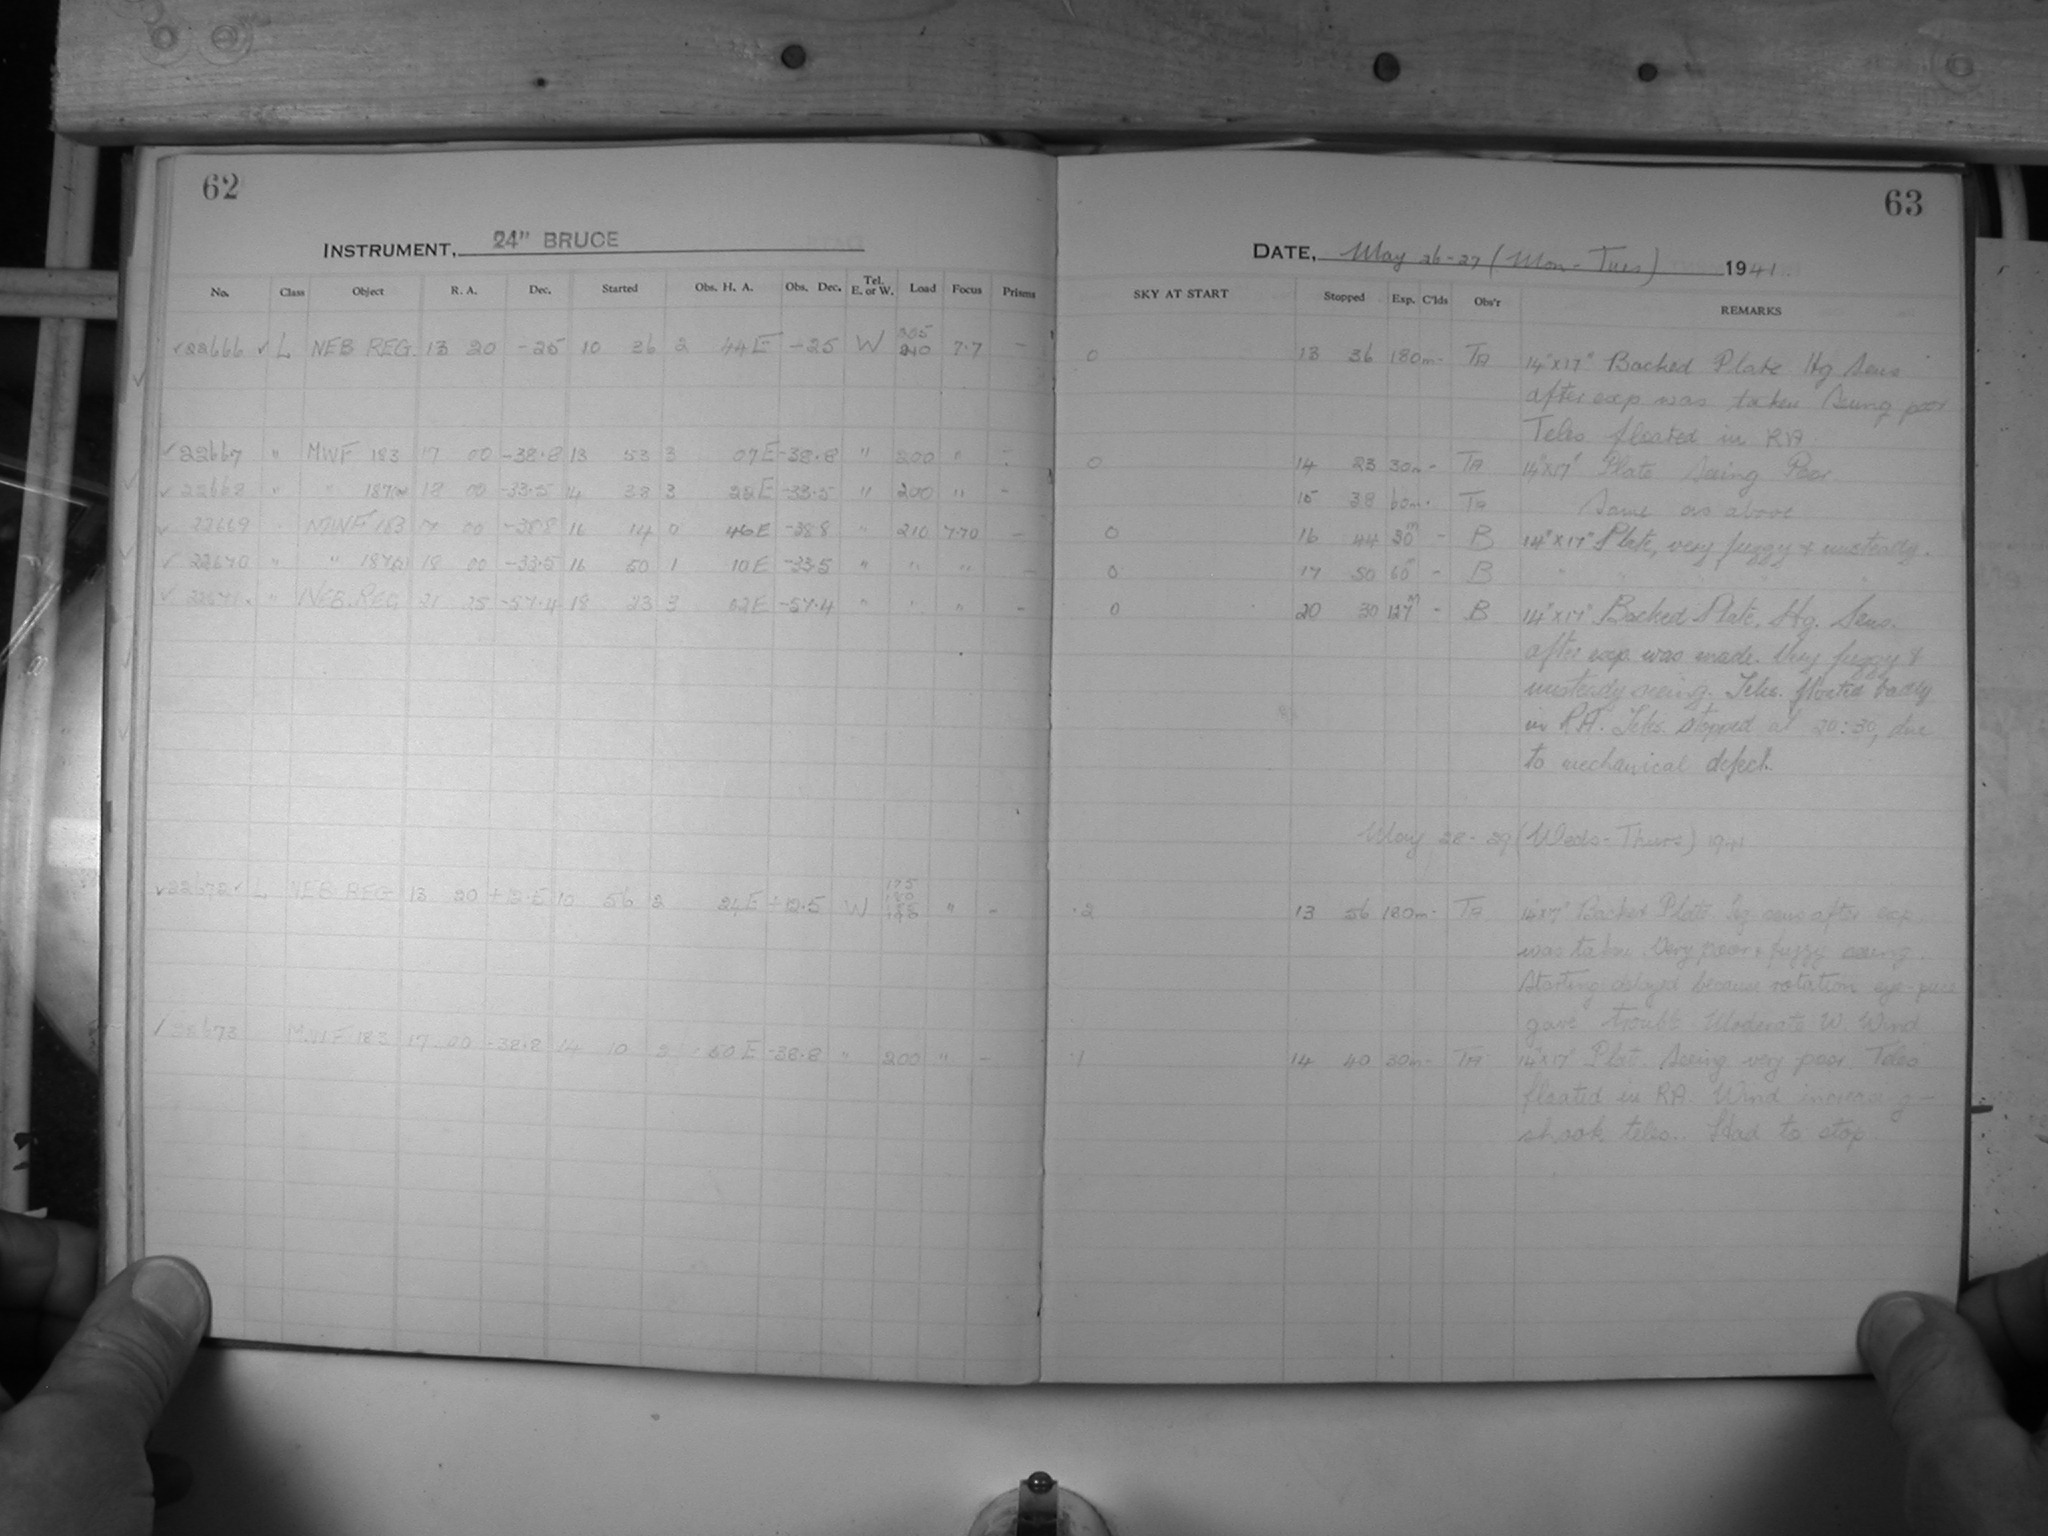 62
INSTRUMENT, 24" BRUCE
No. Class Object R. A. Dec. Started Obs. H. A. Obs. Dec. Tel. E. or W. Load Focus Prisms
✓22666 ✓ L NEB REG. 13 20 -25 10 36 2 44E -25 W 205 210 7.7 -
✓22667 " MWF 183 17 00 -38.8 13 53 3 07E -38.8 " 200 " -
✓22668 " " 187 18 00 -33.5 14 38 3 22E -33.5 " 200 " -
✓ 22669 MWF 183 17 00 -38.8 16 14 0 46E -38.8 " 210 7.70 -
✓ 22670 " " 187 18 00 -33.5 16 50 1 10E -33.5 " " " -
✓ 22671 " NEB. REG 21 25 -57.4 18 23 3 02E -57.4 " " " -
✓22672✓ L NEB REG 13 20 +12.5 10 56 2 24E +12.5 W 175 " -
22673 MWF 183 17 00 -38.8 14 10 2 50E -38.8 " 200 " -
63
DATE, May 26-27 (Mon-Tues) 1941
SKY AT START Stopped Exp. C'lds Obs'r REMARKS
0 13 36 180m - TA 14"x17" Backed Plate Hg Sens
after exp was taken Seeing poor
Teles floated in RA
0 14 23 30m - TA 14"x17" Plate Seeing Poor.
15 38 60m - TA Same as above
0 16 44 30m - B 14"x17" Plate, very fuzzy & unsteady.
0 17 50 60 - B " " " "
0 20 30 127m - B 14"x17" Backed Plate. Hg. Sens.
after exp. was made. Very fuzzy &
unsteady seeing. Teles. floated badly
in RA. Teles. stopped at 20:30, due
to mechanical defect.
May 28-29 (Weds-Thurs) 1941
.2 13 56 180m - TA 14"x17" Backed Plate Hg sens after exp
was taken. Very poor & fuzzy seeing.
Starting delayed because rotation eye-piece
gave trouble Moderate W. Wind
.1 14 40 30m - TA 14"x17" Plate. Seeing very poor. Teles
floated in RA. Wind increasing -
shook teles. Had to stop.